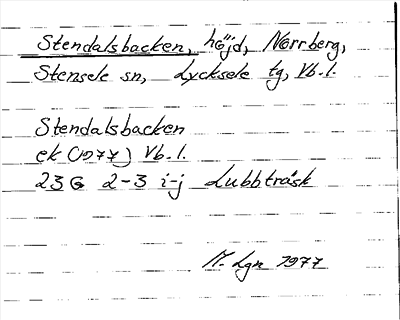 Stendalsbacken, höjd, Norrberg,
Stensele sn, Lycksele tg, Vb. l.
Stendalsbacken
ek (1977) Vb. l.
23 G 2-3 i-j Lubbträsk
M. Lgn 1977